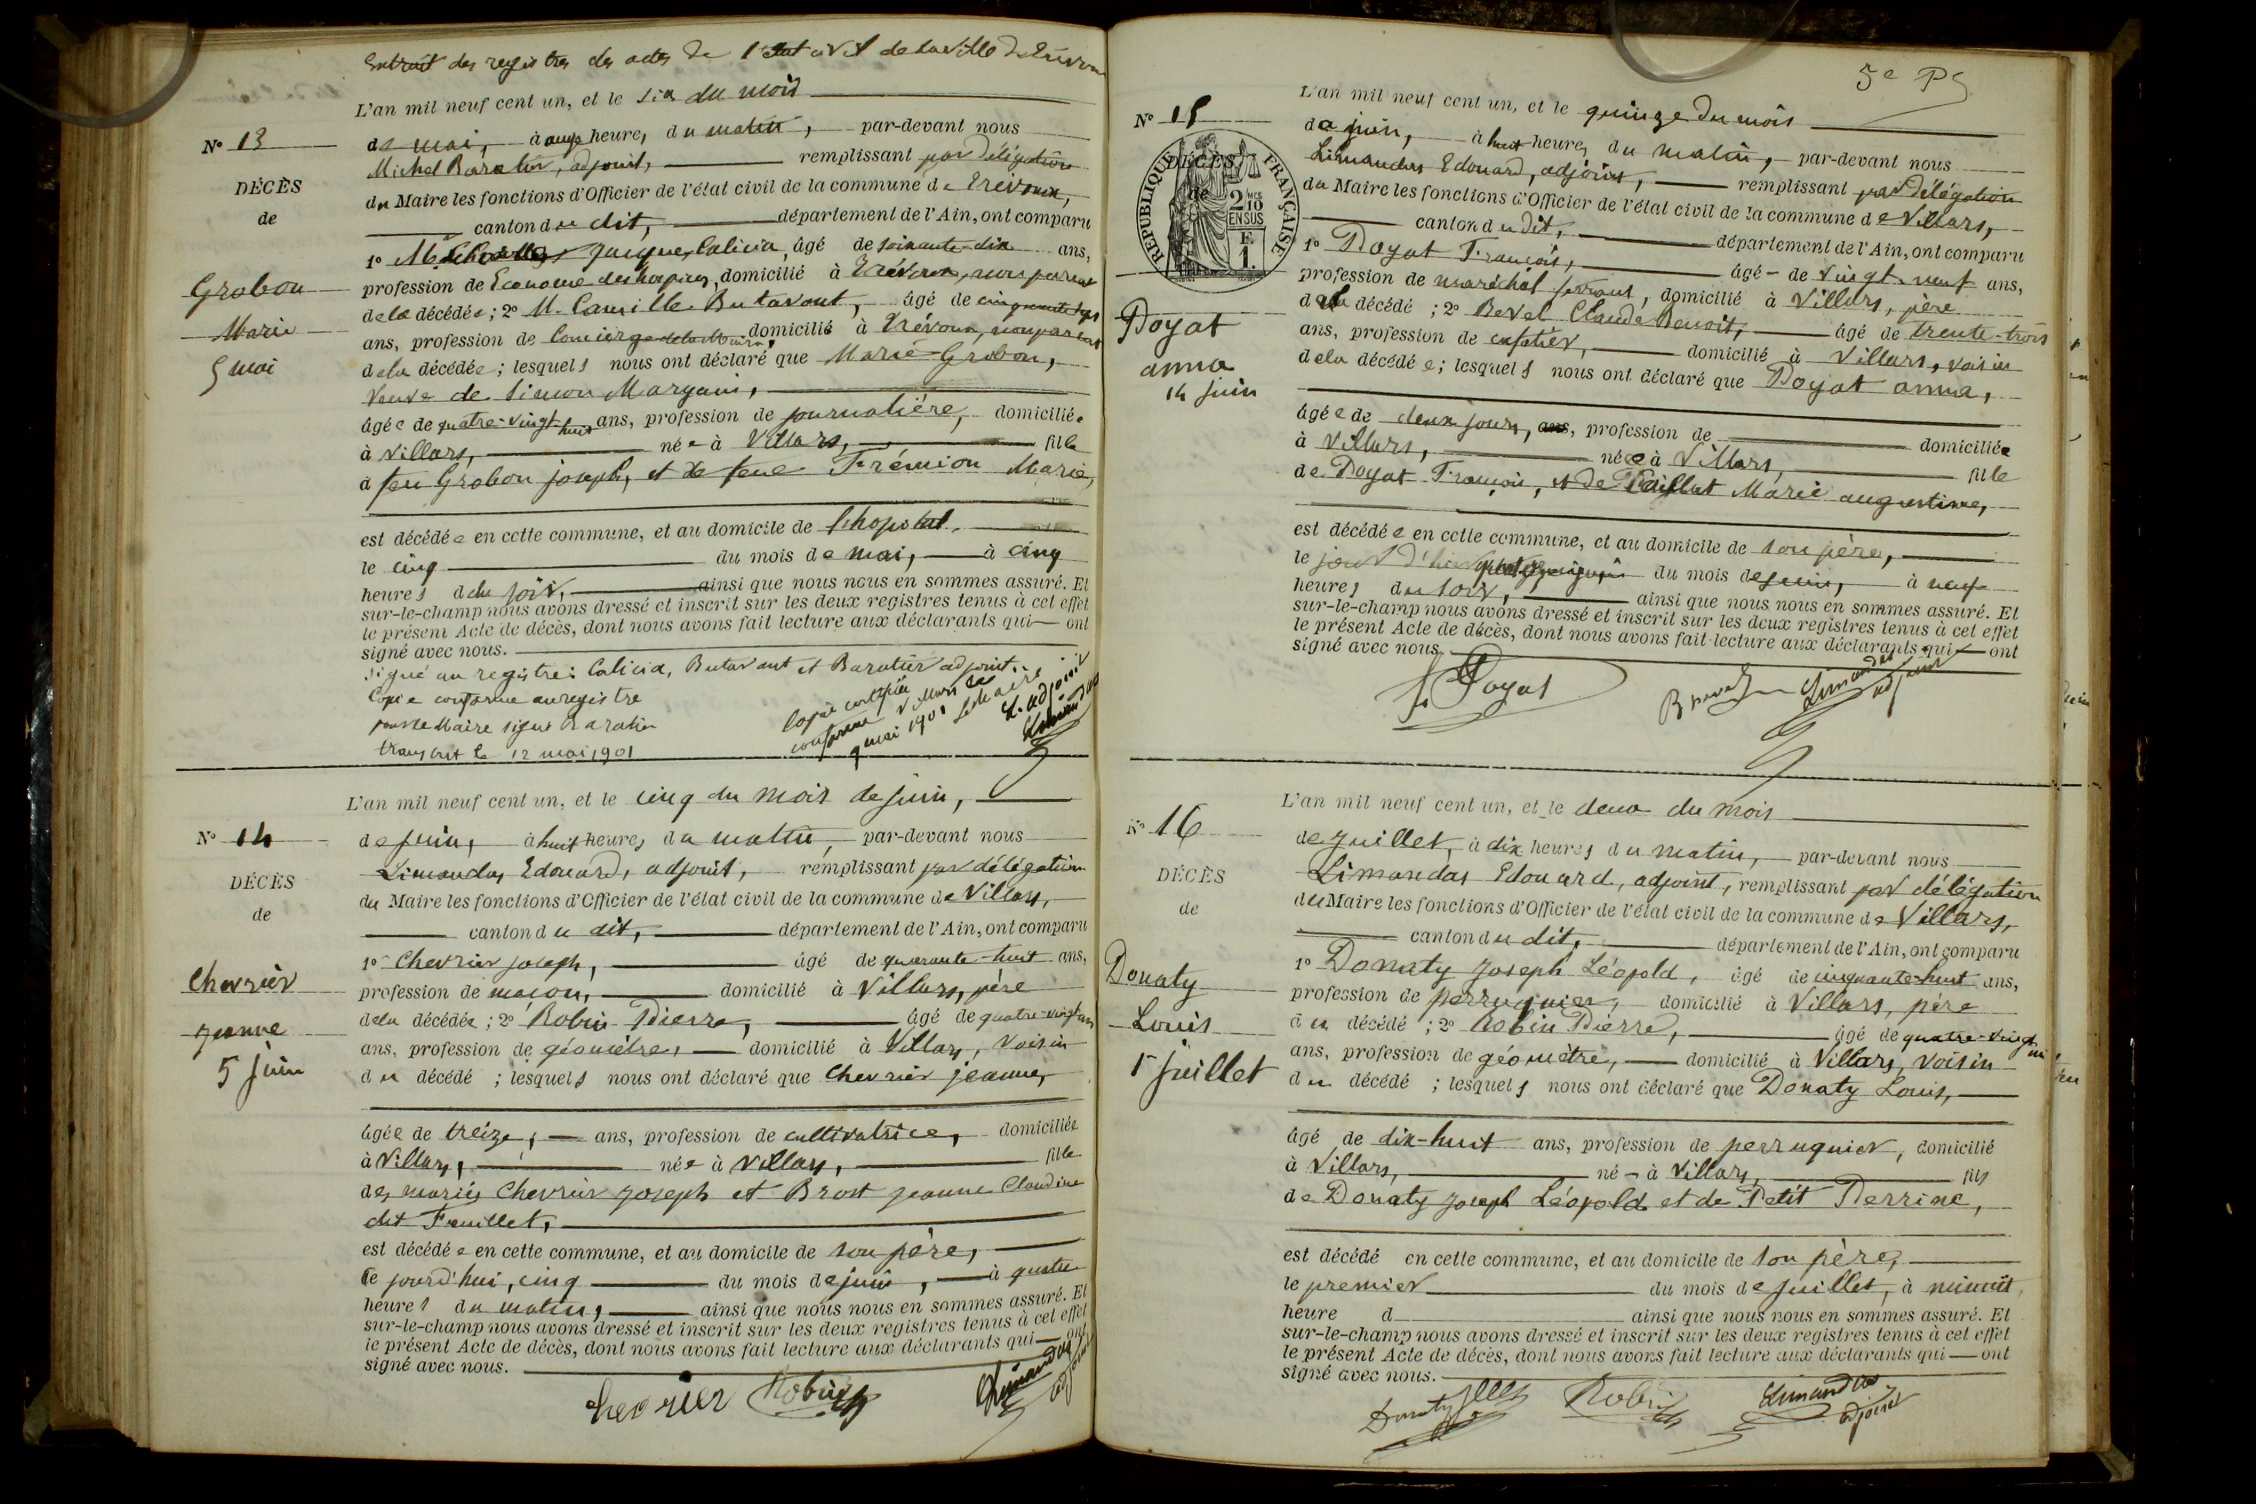 Extrait des registres des actes de l'Etat civil de la ville de Trévoux
L'an mil neuf cent un, et le six du mois
N° 13
de mai, à onze heures du matin, par-devant nous
Michel Baratin, adjoint, remplissant par délégation
DÉCÈS
du Maire les fonctions d'Officier de l'état civil de la commune de Trévoux,
de
canton du dit, département de l'Ain, ont comparu
1° Jacques Calicia, âgé de soixante-dix ans,
profession de Econome des hospices, domicilié à Trévoux, non parent
Grobon
de la décédée; 2° M. Camille Butavant, âgé de cinquante
Marie
ans, profession de Concierge de la Mairie, domicilié à Trévoux, non parent
5 mai
de la décédée; lesquels nous ont déclaré que Marie Grobon,
Veuve de Simon Margain,
âgée de quatre-vingt-huit ans, profession de journalière, domiciliée
à Villars, née à Villars, fille
à feu Grobon joseph, et de feue Frémion Marie,
est décédée en cette commune, et au domicile de l'hopital,
le cinq du mois de mai, à cinq
heures du soir, ainsi que nous nous en sommes assuré. Et
sur-le-champ nous avons dressé et inscrit sur les deux registres tenus à cet effet
le présent Acte de décès, dont nous avons fait lecture aux déclarants qui ont
signé avec nous.
Signé au registre: Calicia, Butavant et Baratin adjoint.
Copie conforme au registre
pour le Maire signé Baratin
transcrit le 12 mai 1901
Copie certifiée
conforme Villars le
9 mai 1901 Le Maire
L'adjoint
Limandas
L'an mil neuf cent un, et le cinq du mois de juin,
N° 14
de juin, à huit heures du matin, par-devant nous
Limandas Edouard, adjoint, remplissant par délégation
DÉCÈS
du Maire les fonctions d'Officier de l'état civil de la commune de Villars,
de
canton du dit, département de l'Ain, ont comparu
1° Chevrier joseph, âgé de quarante-huit ans,
Chevrier
profession de maçon, domicilié à Villars, père
Jeanne
de la décédée; 2° Robin Pierre, âgé de quatre-vingt
5 juin
ans, profession de géomètre, domicilié à Villars, Voisin
du décédé; lesquels nous ont déclaré que Chevrier jeanne,
âgée de treize, ans, profession de cultivatrice, domiciliée
à Villars, née à Villars, fille
des mariés Chevrier Joseph et Brost jeanne Claudine
dit Feuillet,
est décédée en cette commune, et au domicile de son père,
le jourd'hui, cinq du mois de juin, à quatre
heures du matin, ainsi que nous nous en sommes assuré. Et
sur-le-champ nous avons dressé et inscrit sur les deux registres tenus à cet effet
le présent Acte de décès, dont nous avons fait lecture aux déclarants qui ont
signé avec nous.
Chevrier Robin Limandas adjoint
5e P
L'an mil neuf cent un, et le quinze du mois
N° 15
de juin, à huit heures du matin, par-devant nous
Limandas Edouard, adjoint, remplissant par délégation
RÉPUBLIQUE FRANÇAISE
2/10 EN SUS
DÉCÈS
de
du Maire les fonctions d'Officier de l'état civil de la commune de Villars,
canton du dit, département de l'Ain, ont comparu
1° Doyat François, âgé de vingt-neuf ans,
profession de maréchal ferrant, domicilié à Villars, père
Doyat
de la décédé; 2° Bevel Claude Benoit, âgé de trente-trois
anna
ans, profession de cafetier, domicilié à Villars, voisin
14 juin
de la décédée; lesquels nous ont déclaré que Doyat anna,
âgée de deux jours, ans, profession de domiciliée
à Villars, née à Villars, fille
de Doyat François, et de Paillat Marie augustine,
est décédée en cette commune, et au domicile de son père,
le jour d'hier quatorze juin du mois de juin, à neuf
heures du soir, ainsi que nous nous en sommes assuré. Et
sur-le-champ nous avons dressé et inscrit sur les deux registres tenus à cet effet
le présent Acte de décès, dont nous avons fait lecture aux déclarants qui ont
signé avec nous.
F. Doyat Limandas adjoint
L'an mil neuf cent un, et le deux du mois
N° 16
de Juillet, à dix heures du matin, par-devant nous
Limandas Edouard, adjoint, remplissant par délégation
DÉCÈS
du Maire les fonctions d'Officier de l'état civil de la commune de Villars,
de
canton du dit, département de l'Ain, ont comparu
1° Donaty Joseph Léopold, âgé de cinquante-huit ans,
Donaty
profession de perruquier, domicilié à Villars, père
Louis
du décédé; 2° Robin Pierre, âgé de quatre-vingt
1er juillet
ans, profession de géomètre, domicilié à Villars, voisin
du décédé; lesquels nous ont déclaré que Donaty Louis,
âgé de dix-huit ans, profession de perruquier, domicilié
à Villars, né à Villars, fils
de Donaty Joseph Léopold et de Petit Perrine,
est décédé en cette commune, et au domicile de son père,
le premier du mois de juillet, à minuit,
heure d ainsi que nous nous en sommes assuré. Et
sur-le-champ nous avons dressé et inscrit sur les deux registres tenus à cet effet
le présent Acte de décès, dont nous avons fait lecture aux déclarants qui ont
signé avec nous.
Donaty Robin Limandas adjoint